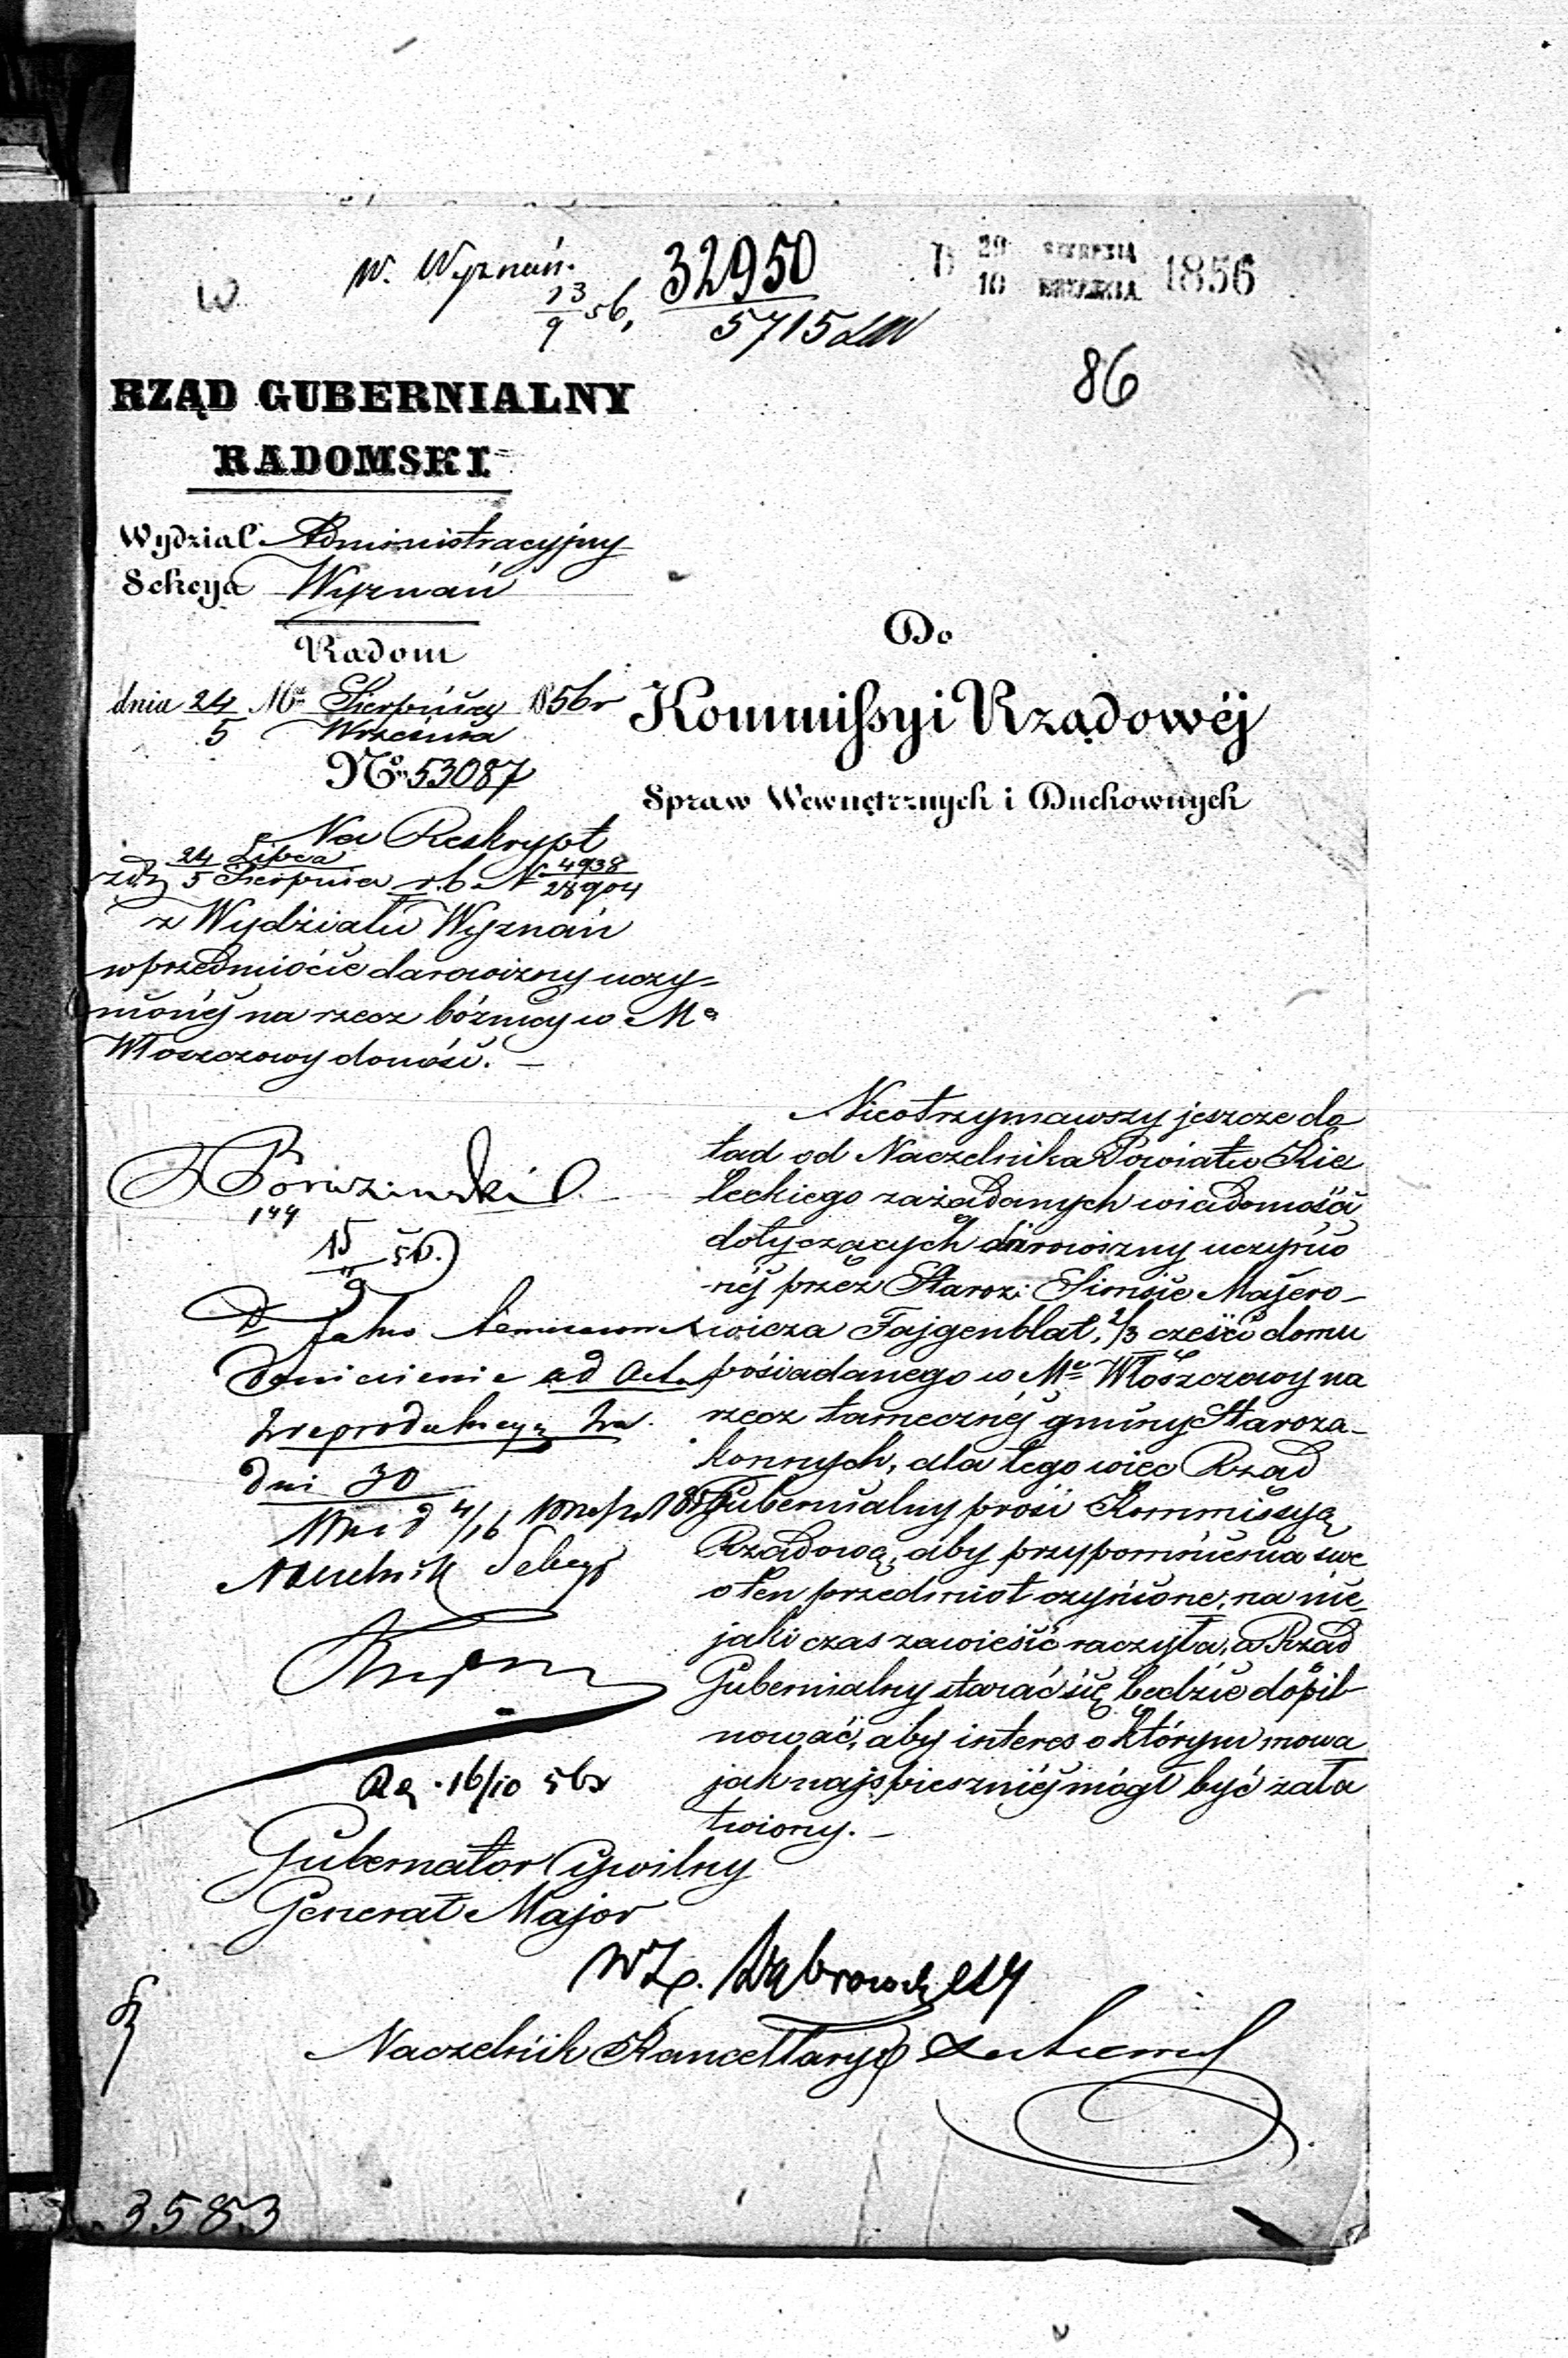 W. Wyznań.
13/9 56,
32950
5715
29 SIERPNIA
10 WRZEŚNIA 1856
86
RZĄD GUBERNIALNY
RADOMSKI
Wydział Administracyjny
Sekcya Wyznań
Radom
dnia 24 Mca Sierpnia 1856 r
5 Września
No 53087
Na Reskrypt
z d. 24 Lipca
5 Sierpnia r. b. N 4938/28904
z Wydziału Wyznań
w przedmiocie darowizny uczy-
nionéj na rzecz bóżnicy w Mie
Włoszczowy donosi. —
Do
Kommissyi Rządowéj
Spraw Wewnętrznych i Duchownych
Nieotrzymawszy jeszcze do
tąd od Naczelnika Powiatu Kie
leckiego zażądanych wiadomości
dotyczących darowizny uczynio
néj przez Staroz: Simsie Majero-
wicza Fajgenblat, 2/3 części domu
posiadanego w Mie Włoszczowy na
rzecz tamecznéj gminy Staroza-
konnych, dla tego więc Rząd
Gubernialny prosi Kommissyą
Rządową, aby przypomnienia swe
o ten przedmiot czynione, na nie-
jaki czas zawiesić raczyła, a Rząd
Gubernialny starać się będzie dopil
nować, aby interes o którym mowa
jak najspieszniéj mógł być zała
twiony. —
144
15/9 56.
Jako
doniesienie ad Acta
z reprodukcyą za
dni 30
d 4/16 Wrześ. 1856
Naczelnik Sekcyi
16/10 56
Gubernator Cywilny
Generał Major
wz. Dąbrowski
Naczelnik Kancellaryi
3583